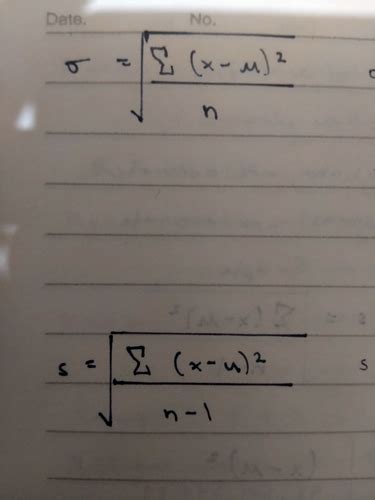 Date. No.
σ = √(Σ (x - μ)² / n)
s = √(Σ (x - μ)² / n - 1) s